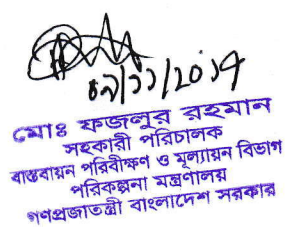 ০৯/১১/২০১৭
মোঃ ফজলুর রহমান
সহকারী পরিচালক
বাস্তবায়ন পরিবীক্ষণ ও মূল্যায়ন বিভাগ
পরিকল্পনা মন্ত্রণালয়
গণপ্রজাতন্ত্রী বাংলাদেশ সরকার